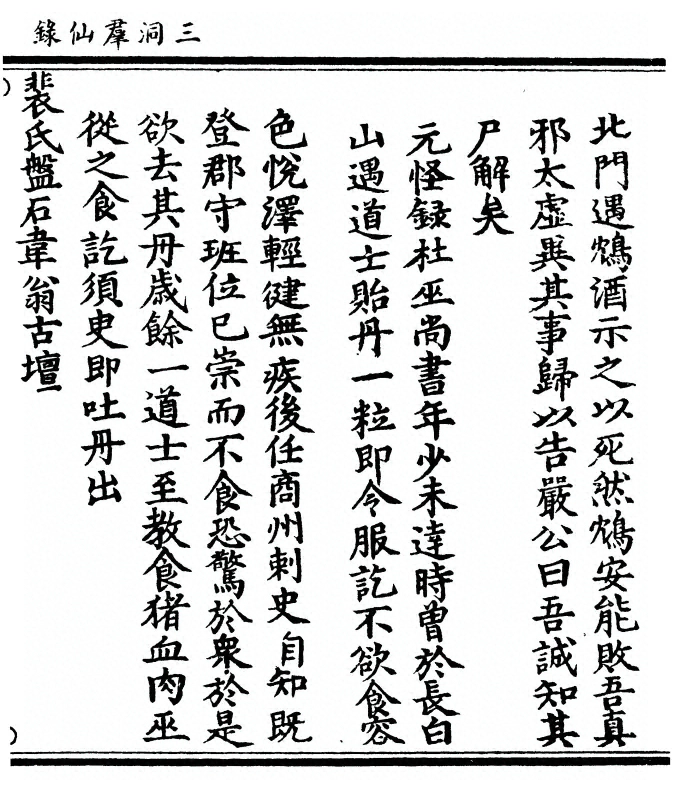 三洞羣仙錄
北門遇鴆酒示之以死然鴆安能敗吾真
邪太虛異其事歸以告嚴公曰吾誠知其
尸解矣
元怪録杜巫尚書年少未達時曾於長白
山遇道士貽丹一粒即令服訖不欲食容
色悅澤輕健無疾後任商州刺史自知既
登郡守班位已崇而不食恐驚於衆於是
欲去其丹歲餘一道士至教食猪血肉巫
從之食訖須臾即吐丹出
裴氏盤石韋翁古壇